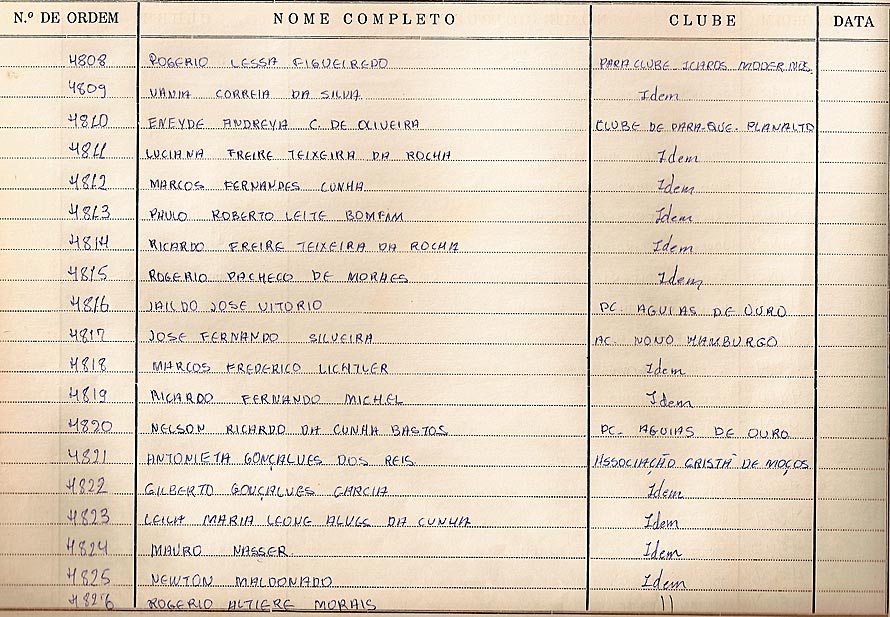 N.º DE ORDEM NOME COMPLETO CLUBE DATA
4808 ROGERIO LESSA FIGUEIREDO PARA CLUBE ICAROS MODERNOS
4809 VANIA CORREIA DA SILVA Idem
4810 ENEYDE ANDREYA C. DE OLIVEIRA CLUBE DE PARA-QUE. PLANALTO
4811 LUCIANA FREIRE TEIXEIRA DA ROCHA Idem
4812 MARCOS FERNANDES CUNHA Idem
4813 PAULO ROBERTO LEITE BOMFAM Idem
4814 RICARDO FREIRE TEIXEIRA DA ROCHA Idem
4815 ROGERIO PACHECO DE MORAES Idem
4816 JAILDO JOSE VITORIO PC. AGUIAS DE OURO
4817 JOSE FERNANDO SILVEIRA AC. NOVO HAMBURGO
4818 MARCOS FREDERICO LICHTLER Idem
4819 RICARDO FERNANDO MICHEL Idem
4820 NELSON RICARDO DA CUNHA BASTOS PC. AGUIAS DE OURO
4821 ANTONIETA GONÇALVES DOS REIS ASSOCIAÇÃO CRISTÃ DE MOÇOS
4822 GILBERTO GONÇALVES GARCIA Idem
4823 LEILA MARIA LEONE ALVES DA CUNHA Idem
4824 MAURO NASSER Idem
4825 NEWTON MALDONADO Idem
4826 ROGERIO ALTIERE MORAIS 11